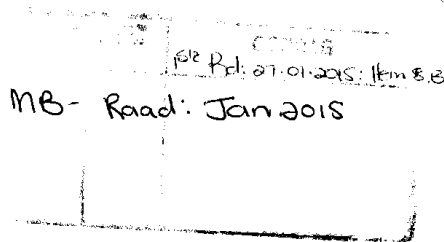 Rd: 27.01.2015: Item 8.8
MB- Raad: Jan 2015